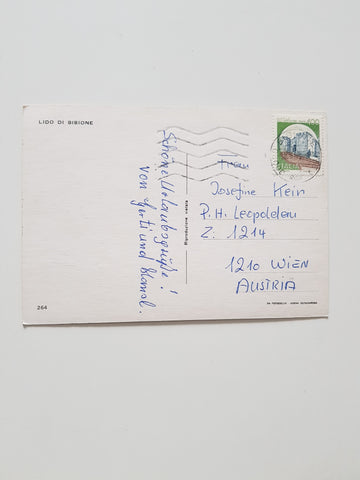 LIDO DI BIBIONE
Schöne Urlaubsgrüße!
von Gerti und
Riproduzione vietata
Josefine Hein
P.H. Leopoldau
Z. 1214
1210 WIEN
AUSTRIA
264